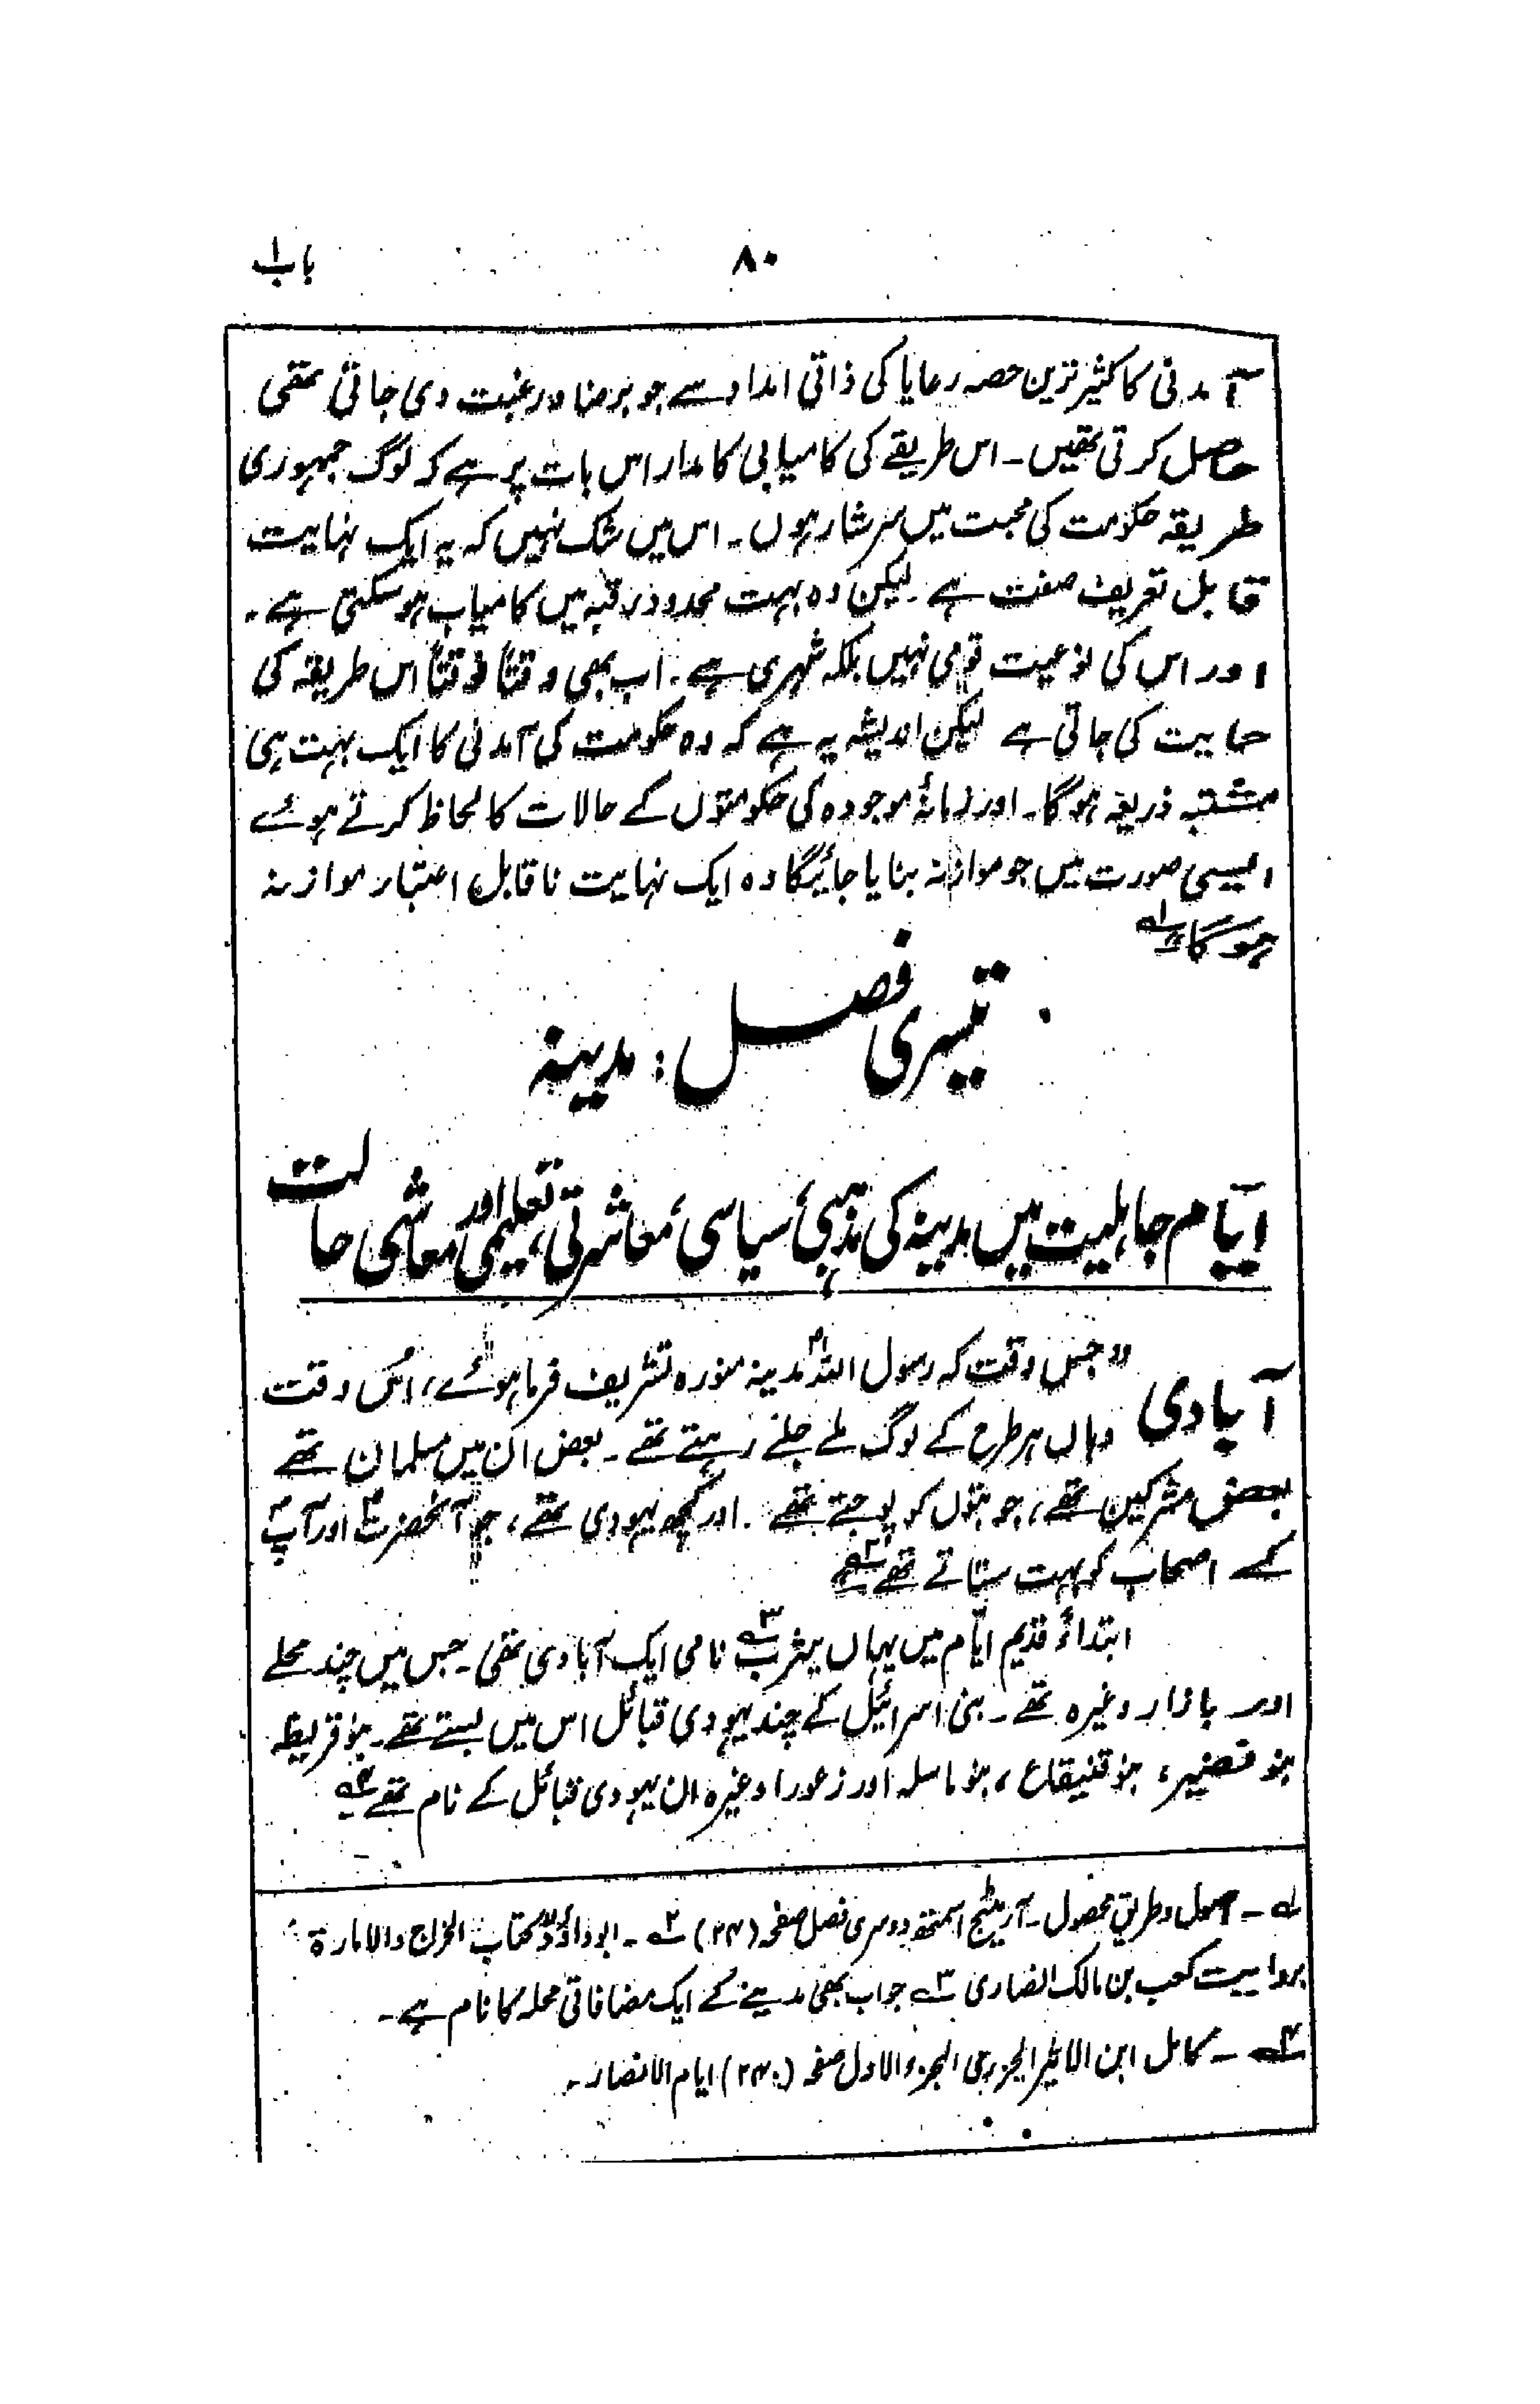 باب ۱
۸۰
آمدنی کا کثیر ترین حصہ رعایا کی ذاتی امداد سے جو برضا ورغبت دی جاتی تھی
حاصل کرتی تھیں۔ اس طریقے کی کامیابی کا مدار اس بات پر ہے کہ لوگ جمہوری
طریقہ حکومت کی محبت میں سرشار ہوں۔ اس میں شک نہیں کہ یہ ایک نہایت
قابل تعریف صفت ہے۔ لیکن وہ بہت محدود رقبہ میں کامیاب ہوسکتی ہے۔
اور اس کی نوعیت قومی نہیں بلکہ شہری ہے۔ اب بھی وقتاً فوقتاً اس طریقہ کی
حمایت کی جاتی ہے لیکن اندیشہ یہ ہے کہ وہ حکومت کی آمدنی کا ایک بہت ہی
مشتبہ ذریعہ ہوگا۔ اور زمانۂ موجودہ کی حکومتوں کے حالات کا لحاظ کرتے ہوئے
ایسی صورت میں جو موازنہ بنایا جائیگا وہ ایک نہایت ناقابل اعتبار موازنہ
ہوگا"۱؎
تیسری فصل: مدینہ
ایام جاہلیت میں مدینہ کی مذہبی، سیاسی، معاشرتی، تعلیمی اور معاشی حالت
آبادی "جس وقت کہ رسول اللہؐ مدینہ منورہ تشریف فرما ہوئے، اُس وقت
وہاں ہر طرح کے لوگ ملے جلے رہتے تھے۔ بعض ان میں مسلمان تھے
بعض مشرکین تھے، جو بتوں کو پوجتے تھے۔ اور کچھ یہودی تھے، جو آنحضرتؐ اور آپؐ
کے اصحاب کو بہت ستاتے تھے"۲؎
ابتداءً قدیم ایّام میں یہاں یثرب۳؎ نامی ایک آبادی تھی۔ جس میں چند محلے
اور بازار وغیرہ تھے۔ بنی اسرائیل کے چند یہودی قبائل اس میں بستے تھے۔ بنو قریظہ
بنو نضیر، بنو قنیقاع، بنو ماسلہ اور زعورا وغیرہ ان یہودی قبائل کے نام تھے۴؎
۱؎۔ اصول وطریق محصول۔ آرمیٹج اسمتھ دوسری فصل صفحہ (۲۴) ۲؎۔ ابوداؤدؒ کتاب الخراج والامارۃ
بروایت کعب بن مالک انصاری ۳؎ جو اب بھی مدینے کے ایک مضافاتی محلہ کا نام ہے۔
۴؎۔ کامل ابن الاثیر الجزری الجزء الاول صفحہ (۲۴۰) ایام الانصار۔